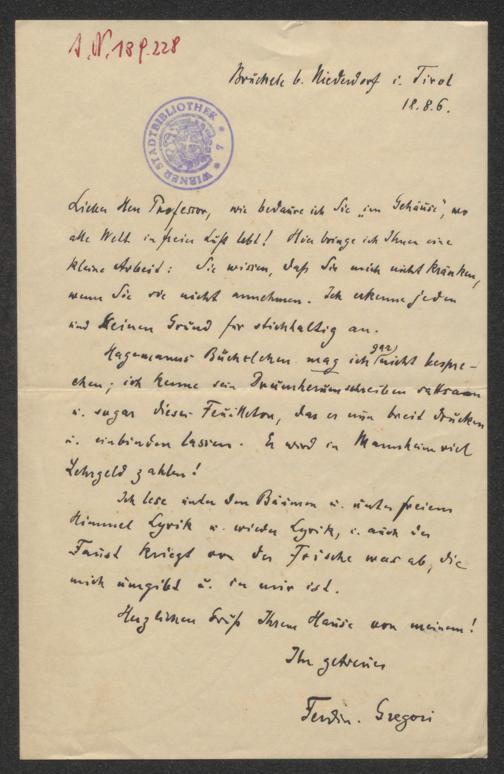 I.N. 189.228
Brückele b. Niederdorf i. Tirol
18.8.6.
WIENER STADTBIBLIOTHEK
Lieber Herr Professor, wie bedaure ich Sie „im Gehäuse“, wo
alle Welt in freier Luft lebt! Hier bringe ich Ihnen eine
kleine Arbeit: Sie wissen, daß Sie mich nicht kränken,
wenn Sie sie nicht annehmen. Ich erkenne jeden
und keinen Grund für stichhaltig an.
Hagemanns Büchelchen mag ich gar nicht bespre-
chen; ich kenne sein Drumherumschreiben sattsam
u. sogar dieses Feuilleton, das er nun breit drucken
u. einbinden lassen. Er wird in Mannheim viel
Lehrgeld zahlen!
Ich lese unter den Bäumen u. unter freiem
Himmel Lyrik u. wieder Lyrik, u. auch der
Faust kriegt von der Frische was ab, die
mich umgibt u. in mir ist.
Herzlichen Gruß Ihrem Hause von meinem!
Ihr getreuer
Ferdin. Gregori